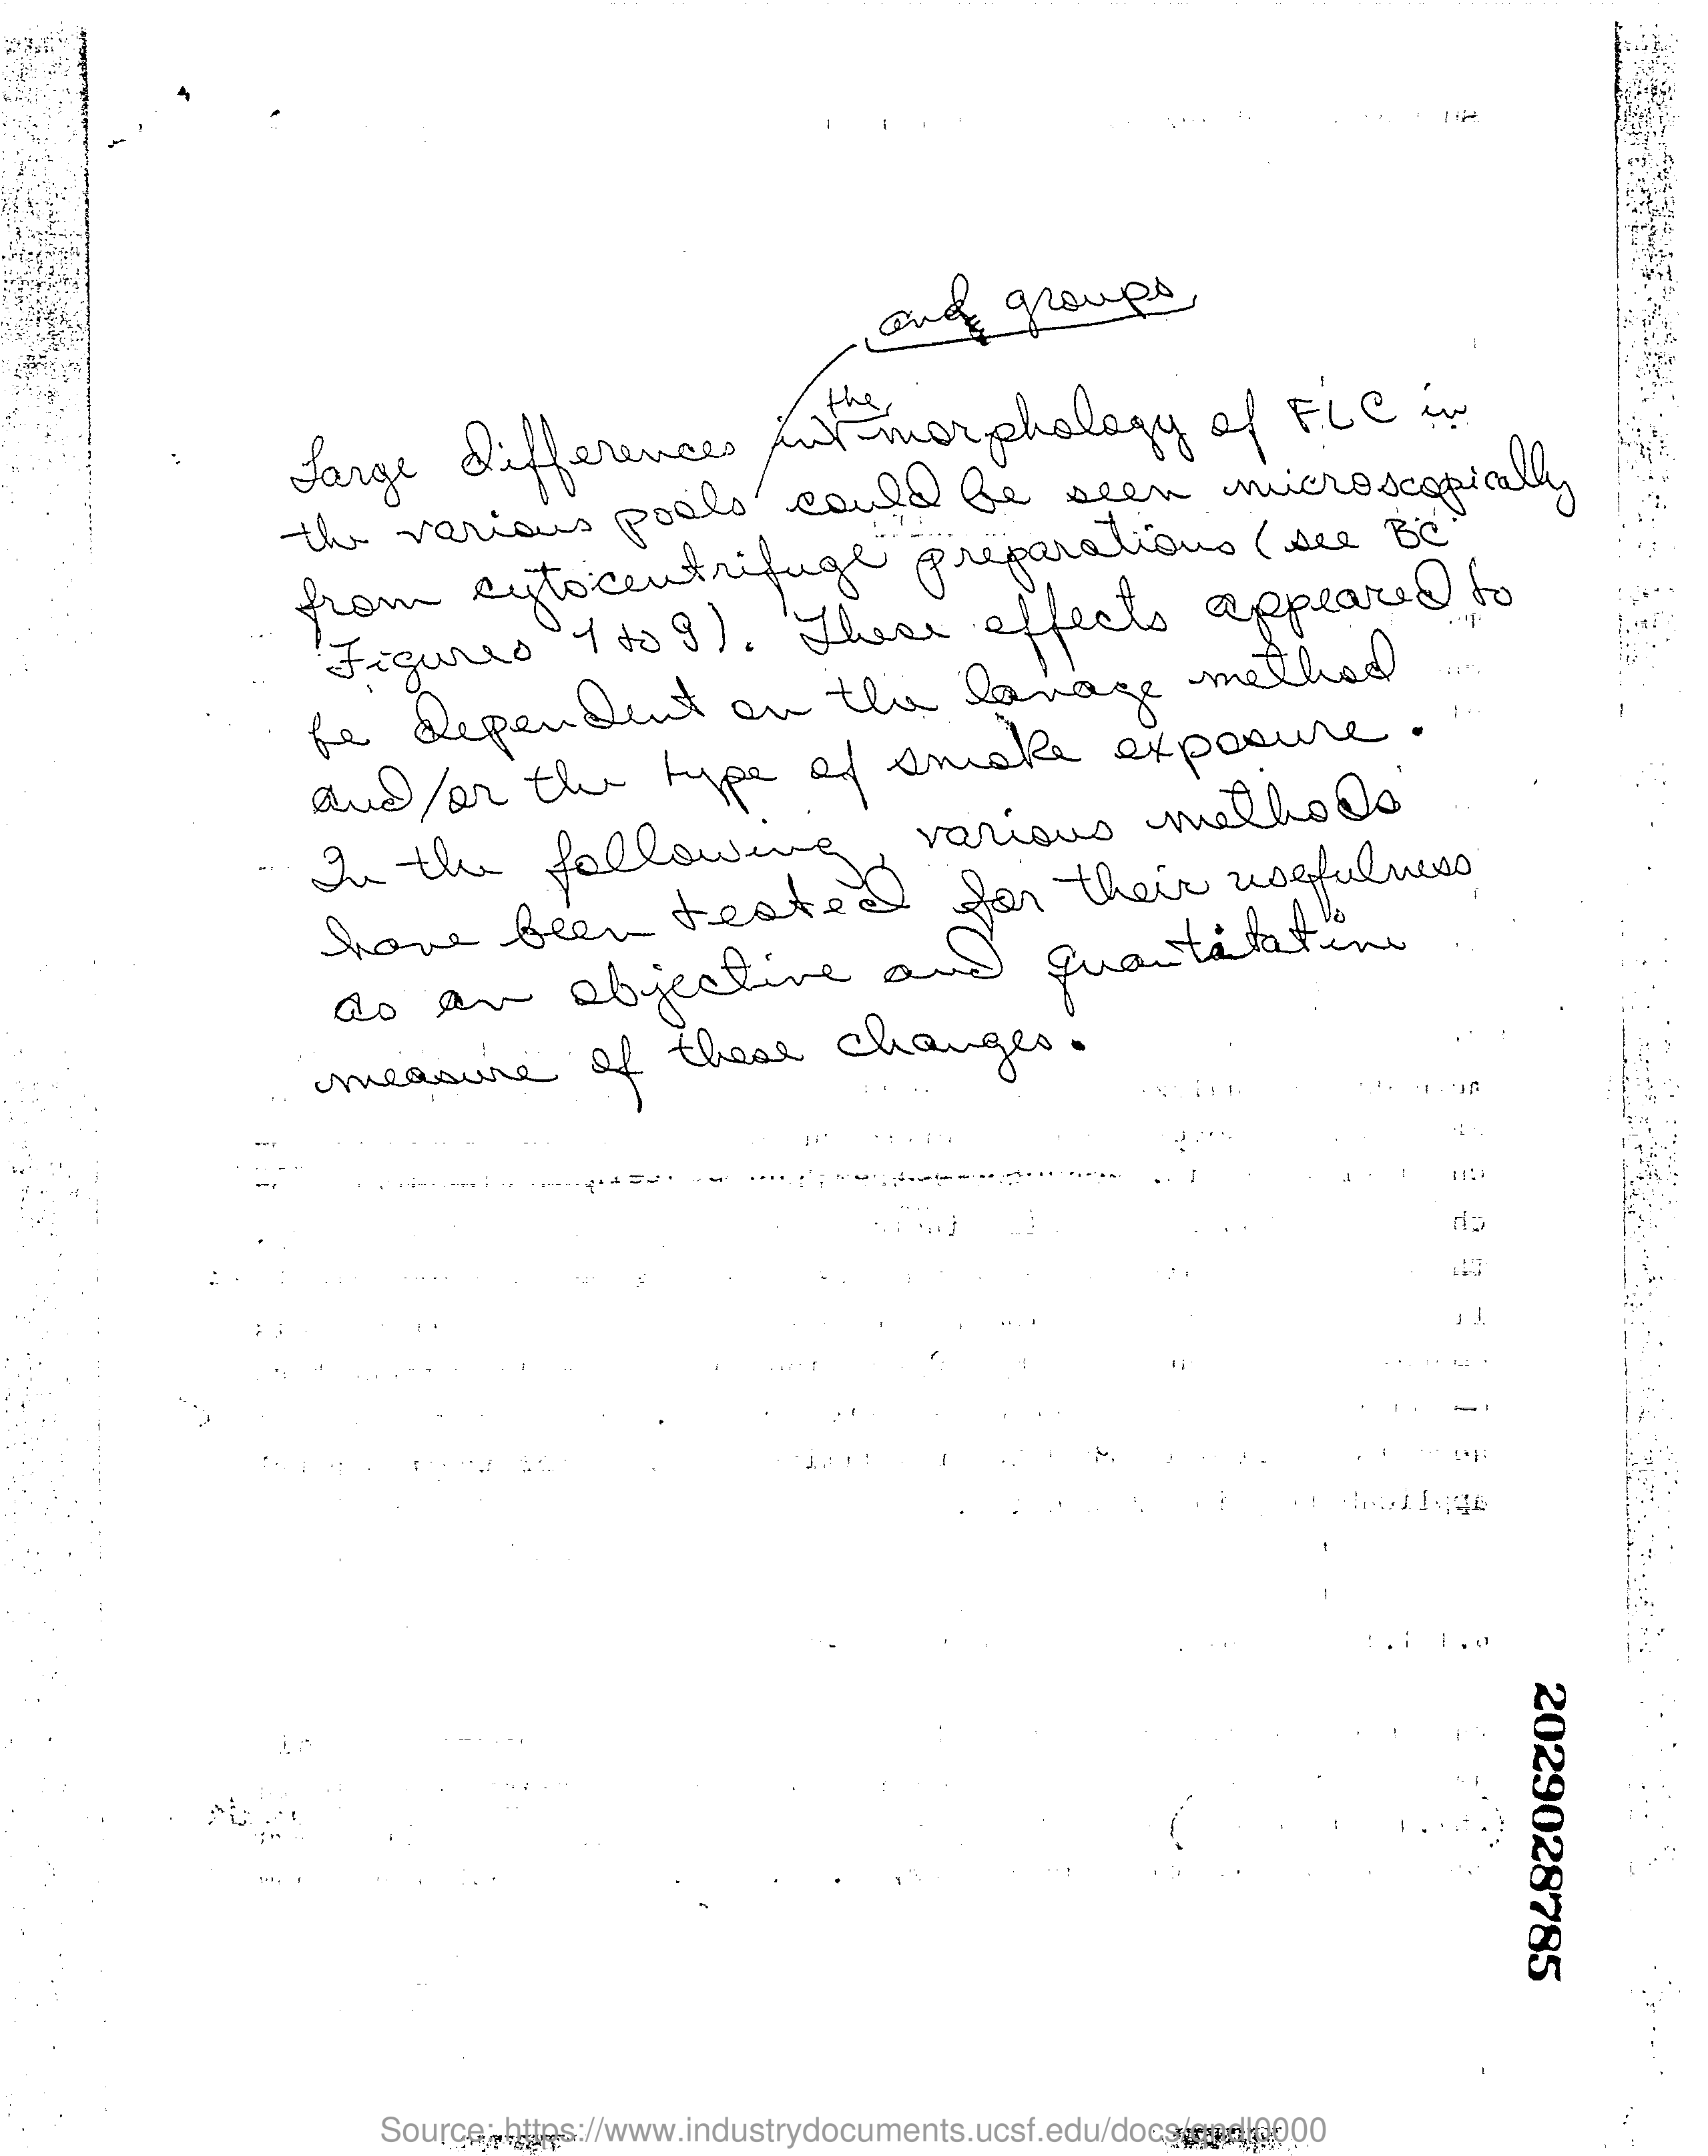 and groups
Large differences in the morphology of FLC in
the various pools could be seen microscopically
from cytocentrifuge preparations (see BC
Figures 1 to 9). These effects appeared to
be dependent on the lavage method
and/or the type of smoke exposure.
In the following, various methods
have been tested for their usefulness
as an objective and quantitative
measure of these changes.
2029028785
Source: https://www.industrydocuments.ucsf.edu/docs/qndl0000